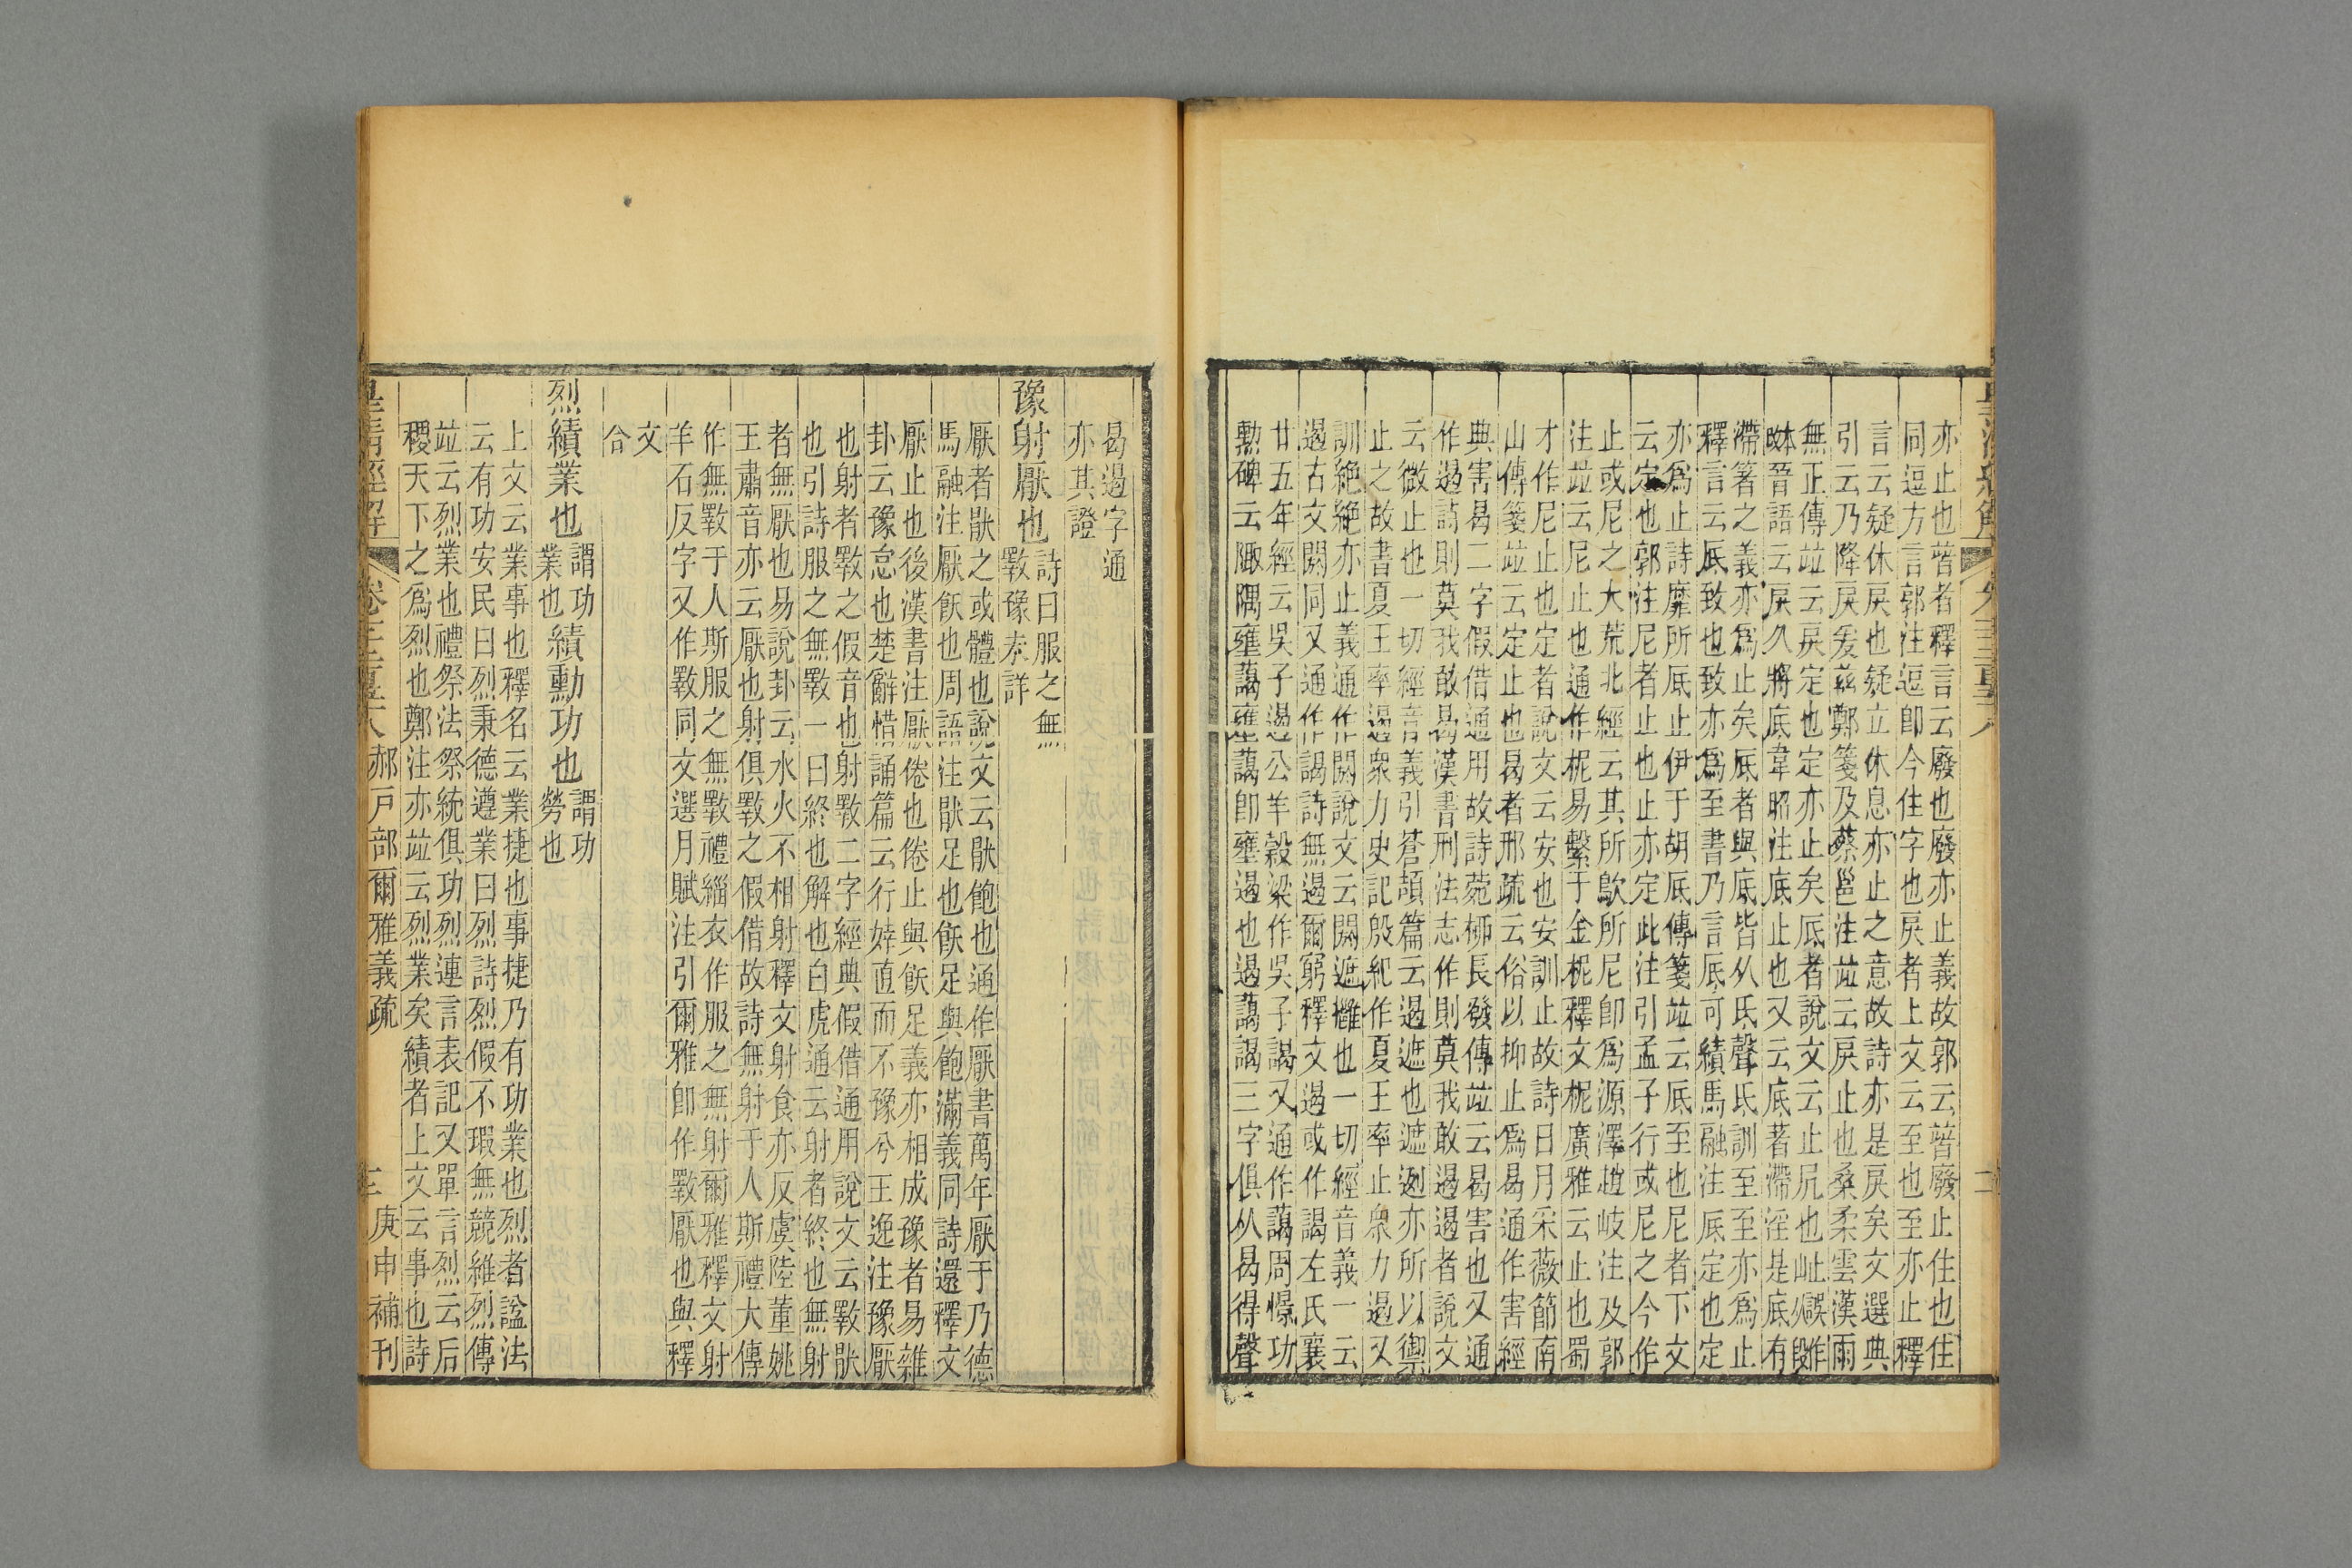 亦止也朁者釋言云廢也廢亦止義故郭云朁廢止住也住
同逗方言郭注逗卽今住字也戻者上文云至也至亦止釋
言云疑休戻也疑立休息亦止之意故詩亦是戻矣文選典
引云乃降戻爰茲鄭箋及蔡邕注竝云戻止也桑柔雲漢雨
無正傳竝云戻定也定亦止矣厎者說文云止凥也
晉語云戻久將底韋昭注底止也又云底著滯淫是底有
滯著之義亦爲止矣厎者與底皆从氐聲氐訓至至亦爲止
釋言云厎致也致亦爲至書乃言厎可績馬融注厎定也定
亦爲止詩靡所厎止伊于胡厎傳箋竝云厎至也尼者下文
云定也郭注尼者止也止亦定此注引孟子行或尼之今作
止或尼之大荒北經云其所歍所尼卽爲源澤趙岐注及郭
注竝云尼止也通作柅易繫于金柅釋文柅廣雅云止也蜀
才作尼止也定者說文云安也安訓止故詩日月采薇節南
山傳箋竝云定止也曷者邢疏云俗以抑止爲曷通作害經
典害曷二字假借通用故詩菀柳長發傳竝云曷害也又通
作遏詩則莫我敢曷漢書刑法志作則莫我敢遏遏者說文
云微止也一切經音義引蒼頡篇云遏遮也遮迾亦所以禦
止之故書夏王率遏眾力史記殷紀作夏王率止眾力遏又
訓絶絶亦止義通作閼說文云閼遮攡也一切經音義一云
遏古文閼同又通作謁詩無遏爾窮釋文遏或作謁左氏襄
廿五年經云吳子遏公羊穀梁作吳子謁又通作藹周憬功
勳碑云陬隅壅藹壅藹卽壅遏也遏藹謁三字俱从曷得聲
曷遏字通
亦其證
豫射厭也詩曰服之無斁豫未詳
厭者猒之或體也說文云猒飽也通作厭書萬年厭于乃德
馬融注厭飫也周語注猒足也飫足與飽滿義同詩還釋文
厭止也後漢書注厭倦也倦止與飫足義亦相成豫者易雜
卦云豫怠也楚辭惜誦篇云行婞直而不豫兮王逸注豫厭
也射者斁之假音也射斁二字經典假借通用說文云斁猒
也引詩服之無斁一曰終也解也白虎通云射者終也無射
者無厭也易說卦云水火不相射釋文射食亦反虞陸董姚
王肅音亦云厭也射俱斁之假借故詩無射于人斯禮大傳
作無斁于人斯服之無斁禮緇衣作服之無射爾雅釋文射
羊石反字又作斁同文選月賦注引爾雅卽作斁厭也與釋
文
合
烈績業也謂功業也績勳功也謂功勞也
上文云業事也釋名云業捷也事捷乃有功業也烈者諡法
云有功安民曰烈秉德遵業曰烈詩烈假不瑕無競維烈傳
竝云烈業也禮祭法祭統俱功烈連言表記又單言烈云后
稷天下之爲烈也鄭注亦竝云烈業矣績者上文云事也詩
郝戸部爾雅義疏
庚申補刊